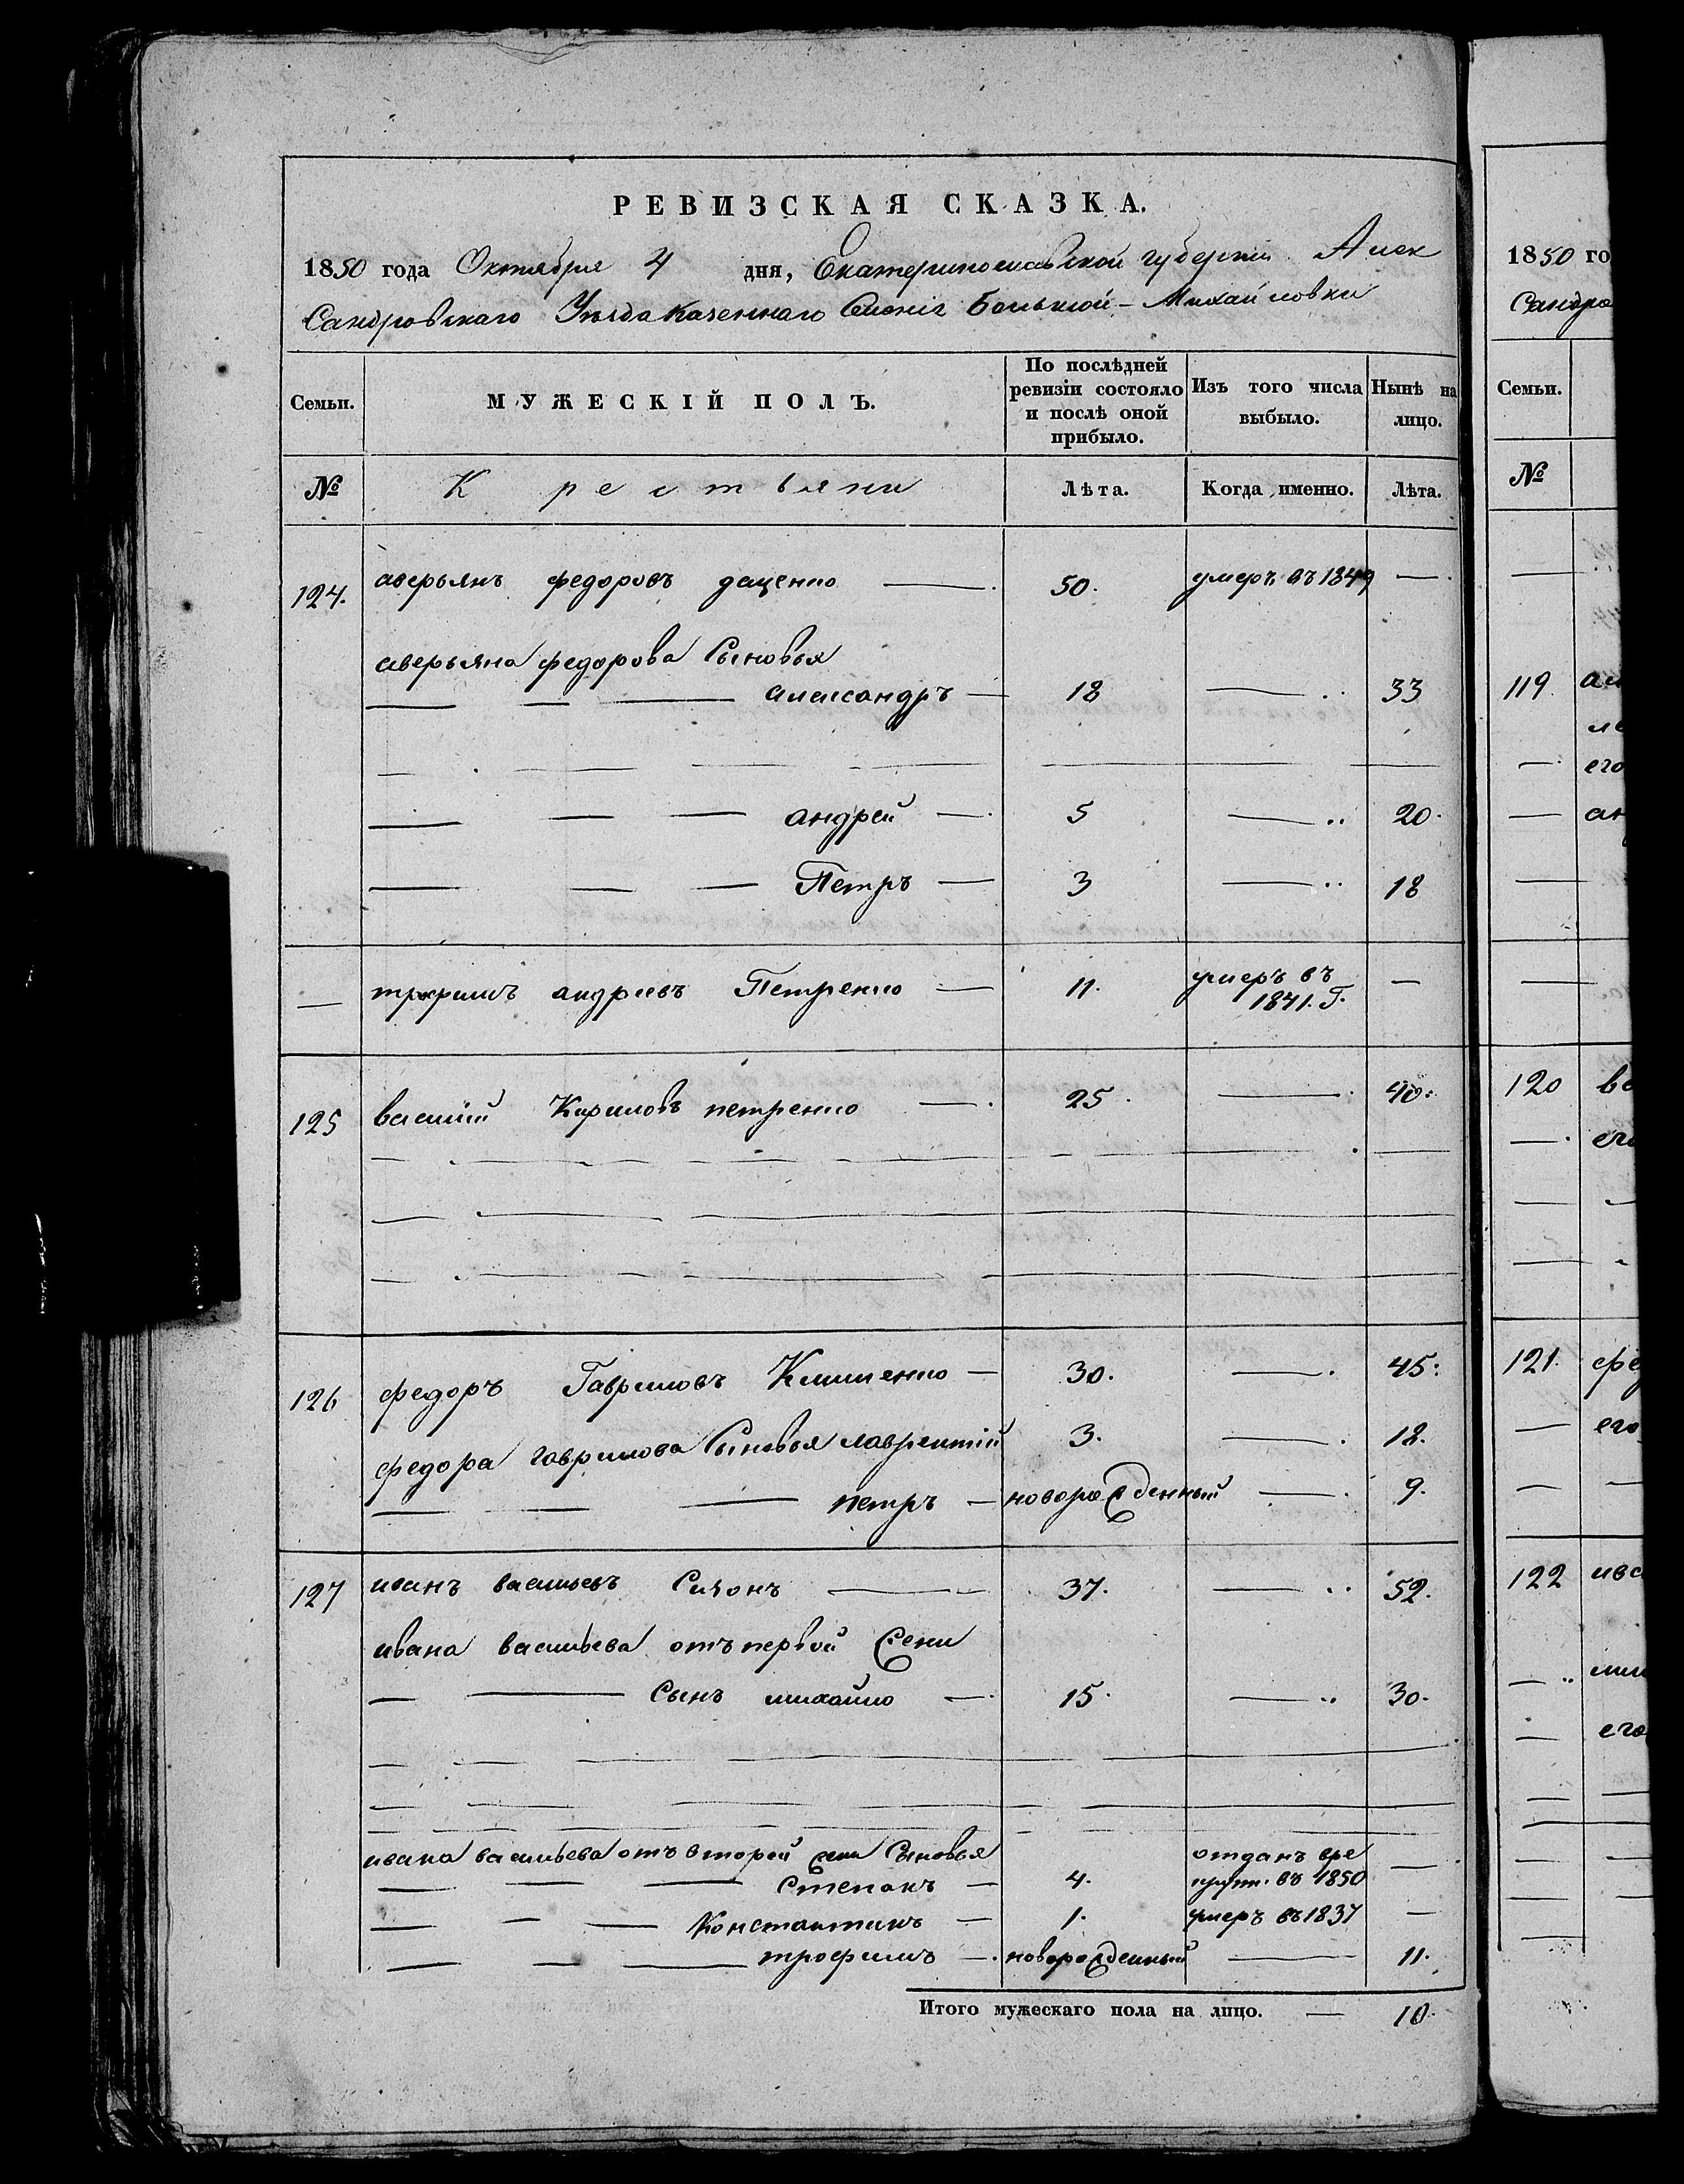 РЕВИЗСКАЯ СКАЗКА.
1850 года Октября 4 дня, Екатеринославской губерніи Алек
Сандровскаго Уѣзда Казеннаго Селенія Большой-Михайловки
Семьи. МУЖЕСКІЙ ПОЛЪ. По послѣдней ревизіи состояло и послѣ оной прибыло. Изъ того числа выбыло. Нынѣ на лицо.
№ Крестьяни Лѣта. Когда именно. Лѣта.
124. аверьянъ федоровъ даценко 50. умеръ въ 1849
аверьяна федорова Сыновья
александръ 18 33
андрей 5 20.
Петръ 3 18
трофимъ андреевъ Петренко 11. умеръ въ
1841. Г.
125 василій Кириловъ петренко 25. 40.
126 федоръ Гавриловъ Клименко 30. 45.
федора гаврилова Сыновья лаврентій 3. 18.
петръ новорожденный 9.
127 иванъ васильевъ 37. 52.
ивана васильева отъ первой жены
Сынъ михайло 15. 30.
ивана васильева отъ второй жены Сыновья отданъ вре
Степанъ 4. крут. въ 1850
Константинъ 1. умеръ въ 1837
трофимъ новорожденный 11.
Итого мужескаго пола на лицо. 10.
1850 го
Сандро
Семьи.
№
119
его
120
121.
его
122
его